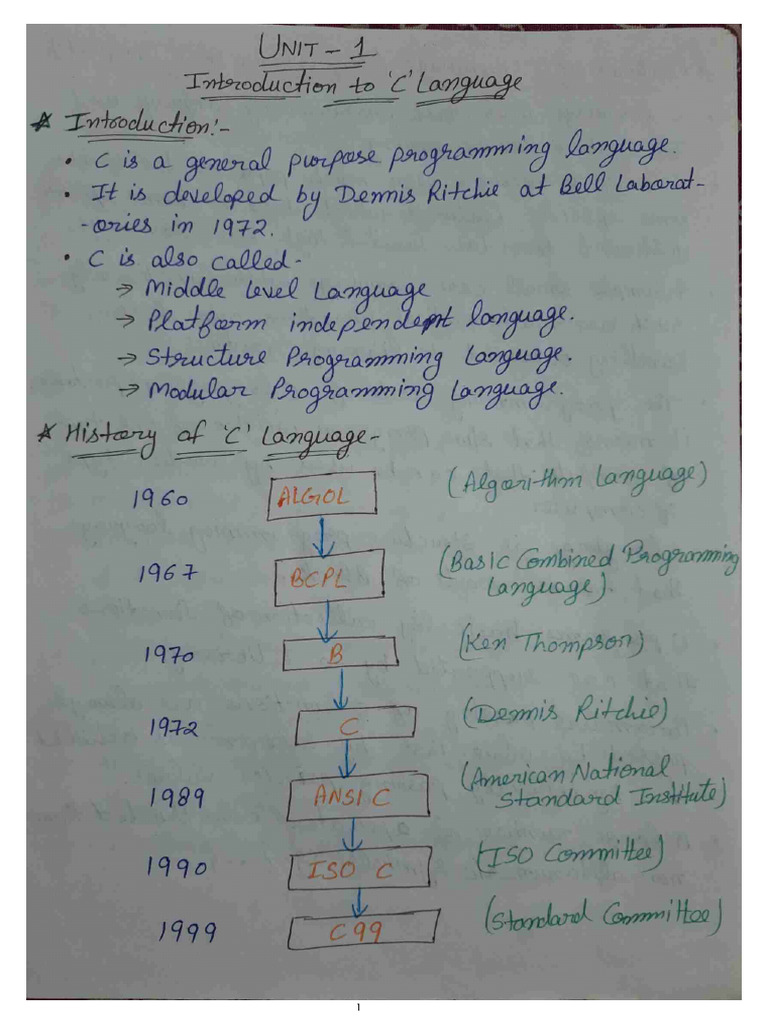 UNIT - 1
Introduction to 'C' Language
* Introduction:-
• C is a general purpose programming language.
• It is developed by Dennis Ritchie at Bell Laborat-
-ories in 1972.
• C is also called-
→ Middle Level Language
→ Platform independent language.
→ Structure Programming Language.
→ Modular Programming Language.
* History of 'C' Language-
1960 ALGOL (Algorithm Language)
1967 BCPL (Basic Combined Programming
Language).
1970 B (Ken Thompson)
1972 C (Dennis Ritchie)
1989 ANSI C (American National
Standard Institute)
1990 ISO C (ISO Committee)
1999 C99 (Standard Committee)
1